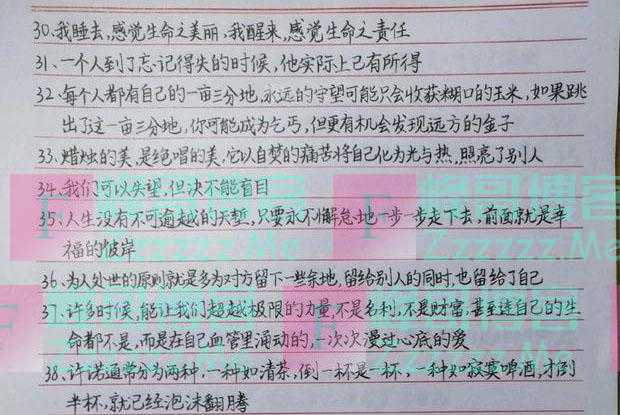 30.我睡去,感觉生命之美丽,我醒来,感觉生命之责任
31、一个人到了忘记得失的时候,他实际上已有所得
32、每个人都有自己的一亩三分地,永远的守望可能只会收获糊口的玉米,如果跳
出了这一亩三分地,你可能成为乞丐,但更有机会发现远方的金子
33.蜡烛的美,是绝唱的美,它以自焚的痛苦将自己化为光与热,照亮了别人
34.我们可以失望,但决不能盲目
35、人生没有不可逾越的天堑,只要永不懈怠地一步一步走下去,前面就是幸
福的彼岸
36.为人处世的原则就是多为对方留下一些余地,留给别人的同时,也留给了自己
37.许多时候,能让我们超越极限的力量,不是名利,不是财富,甚至连自己的生
命都不是,而是在自己血管里涌动的,一次次漫过心底的爱
38、许诺通常分为两种,一种如清茶,倒一杯是一杯,一种如寂寞啤酒,才倒
半杯,就已经泡沫翻腾
Zzzzzz.Me
Zzzzzz.Me